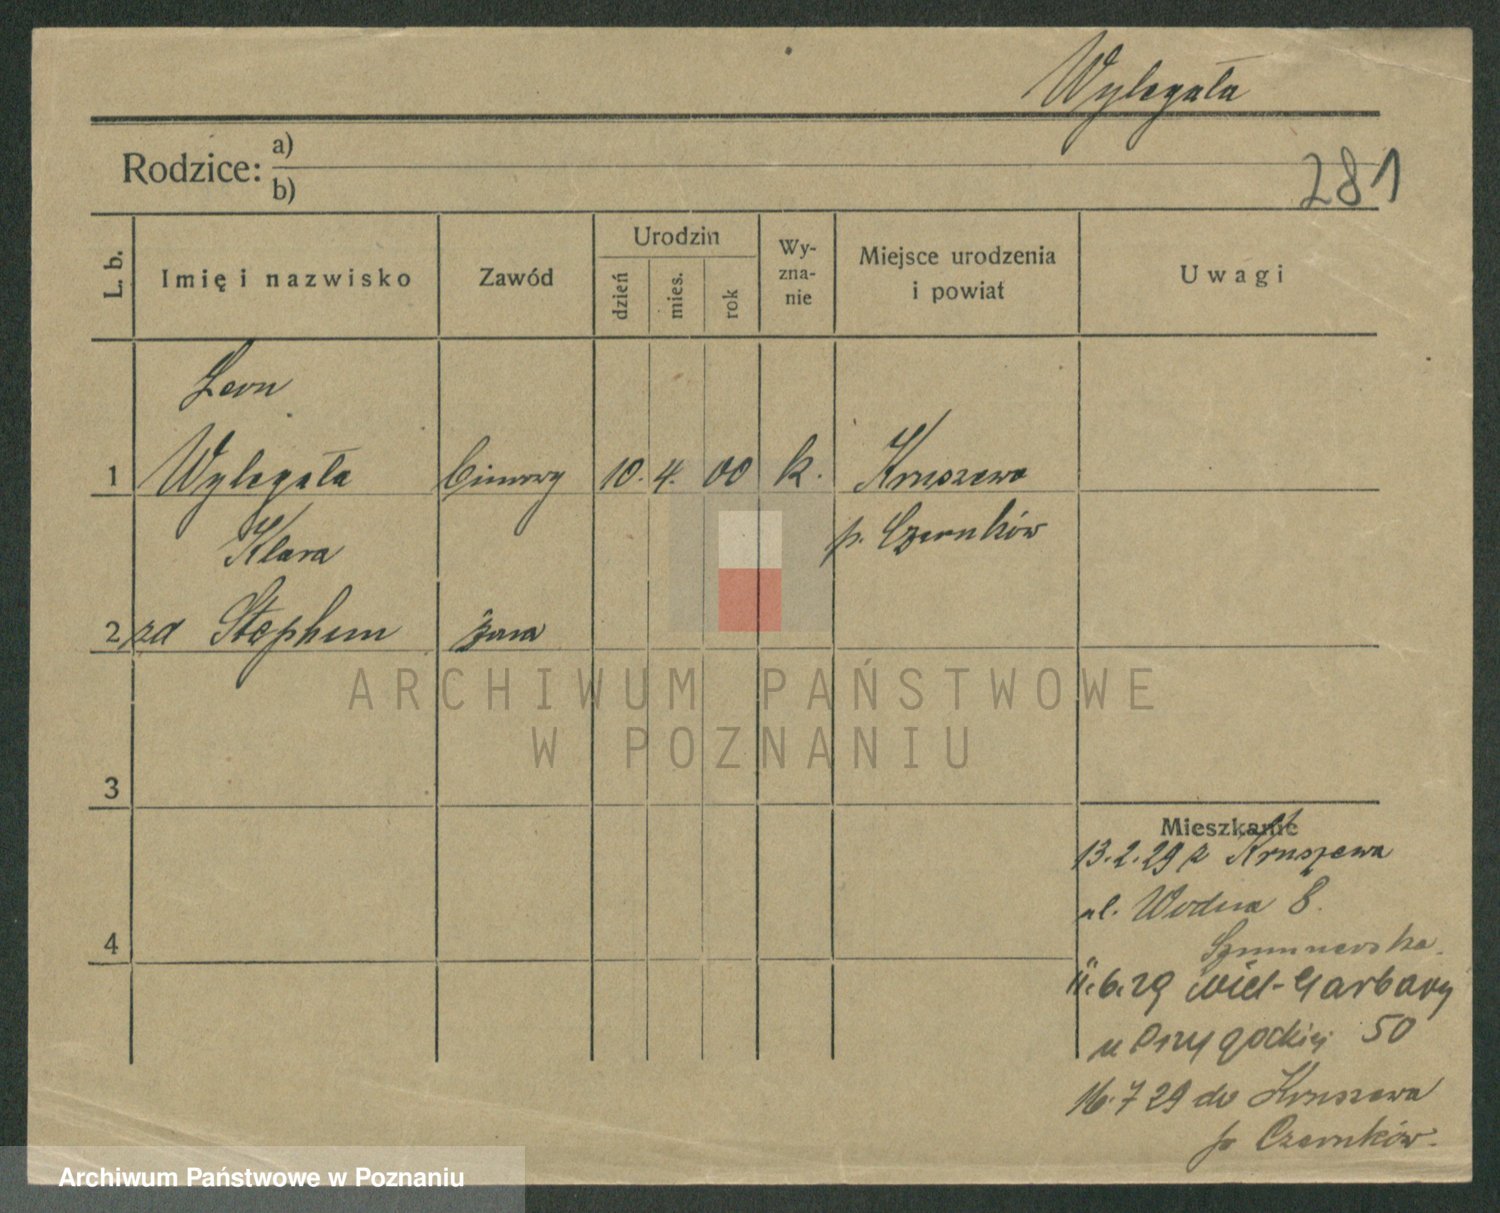 Wylegała
Rodzice: a)
b)
281
L. b.
Imię i nazwisko
Zawód
Urodzin
dzień
mies.
rok
Wy-
zna-
nie
Miejsce urodzenia
i powiat
Uwagi
Leon
1 Wylegała 10. 4. 00 k. Kruszewo
p. Czarnków
Klara
2 zd Stephun żona
3
4
Mieszkanie
13.2.29 z Kruszewa
ul. Wodna 8.
6.29 Wiel-Garbary
u Przygodkiej 50
16.7 29 do Kruszewa
p Czarnków.
ARCHIWUM PAŃSTWOWE
W POZNANIU
Archiwum Państwowe w Poznaniu